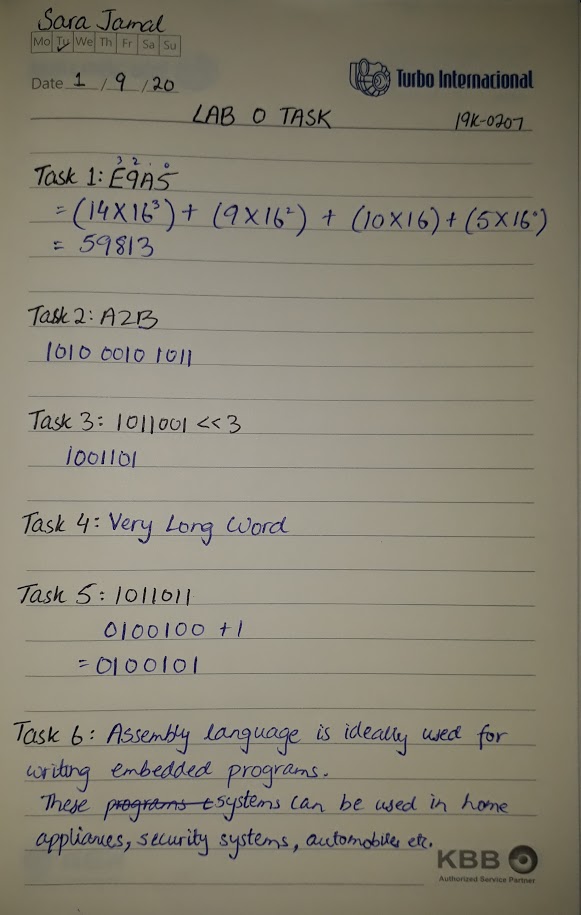 Sara Jamal
Mo Tu We Th Fr Sa Su
Date 1 / 9 / 20
Turbo Internacional
LAB 0 TASK
19K-0207
3 2 . 0
Task 1: E9A5
= (14X16³) + (9X16²) + (10X16) + (5X16⁰)
= 59813
Task 2: A2B
1010 0010 1011
Task 3: 1011001 <<3
1001101
Task 4: Very Long Word
Task 5: 1011011
0100100 +1
= 0100101
Task 6: Assembly language is ideally used for
writing embedded programs.
These programs t systems can be used in home
appliances, security systems, automobiles etc.
KBB
Authorized Service Partner